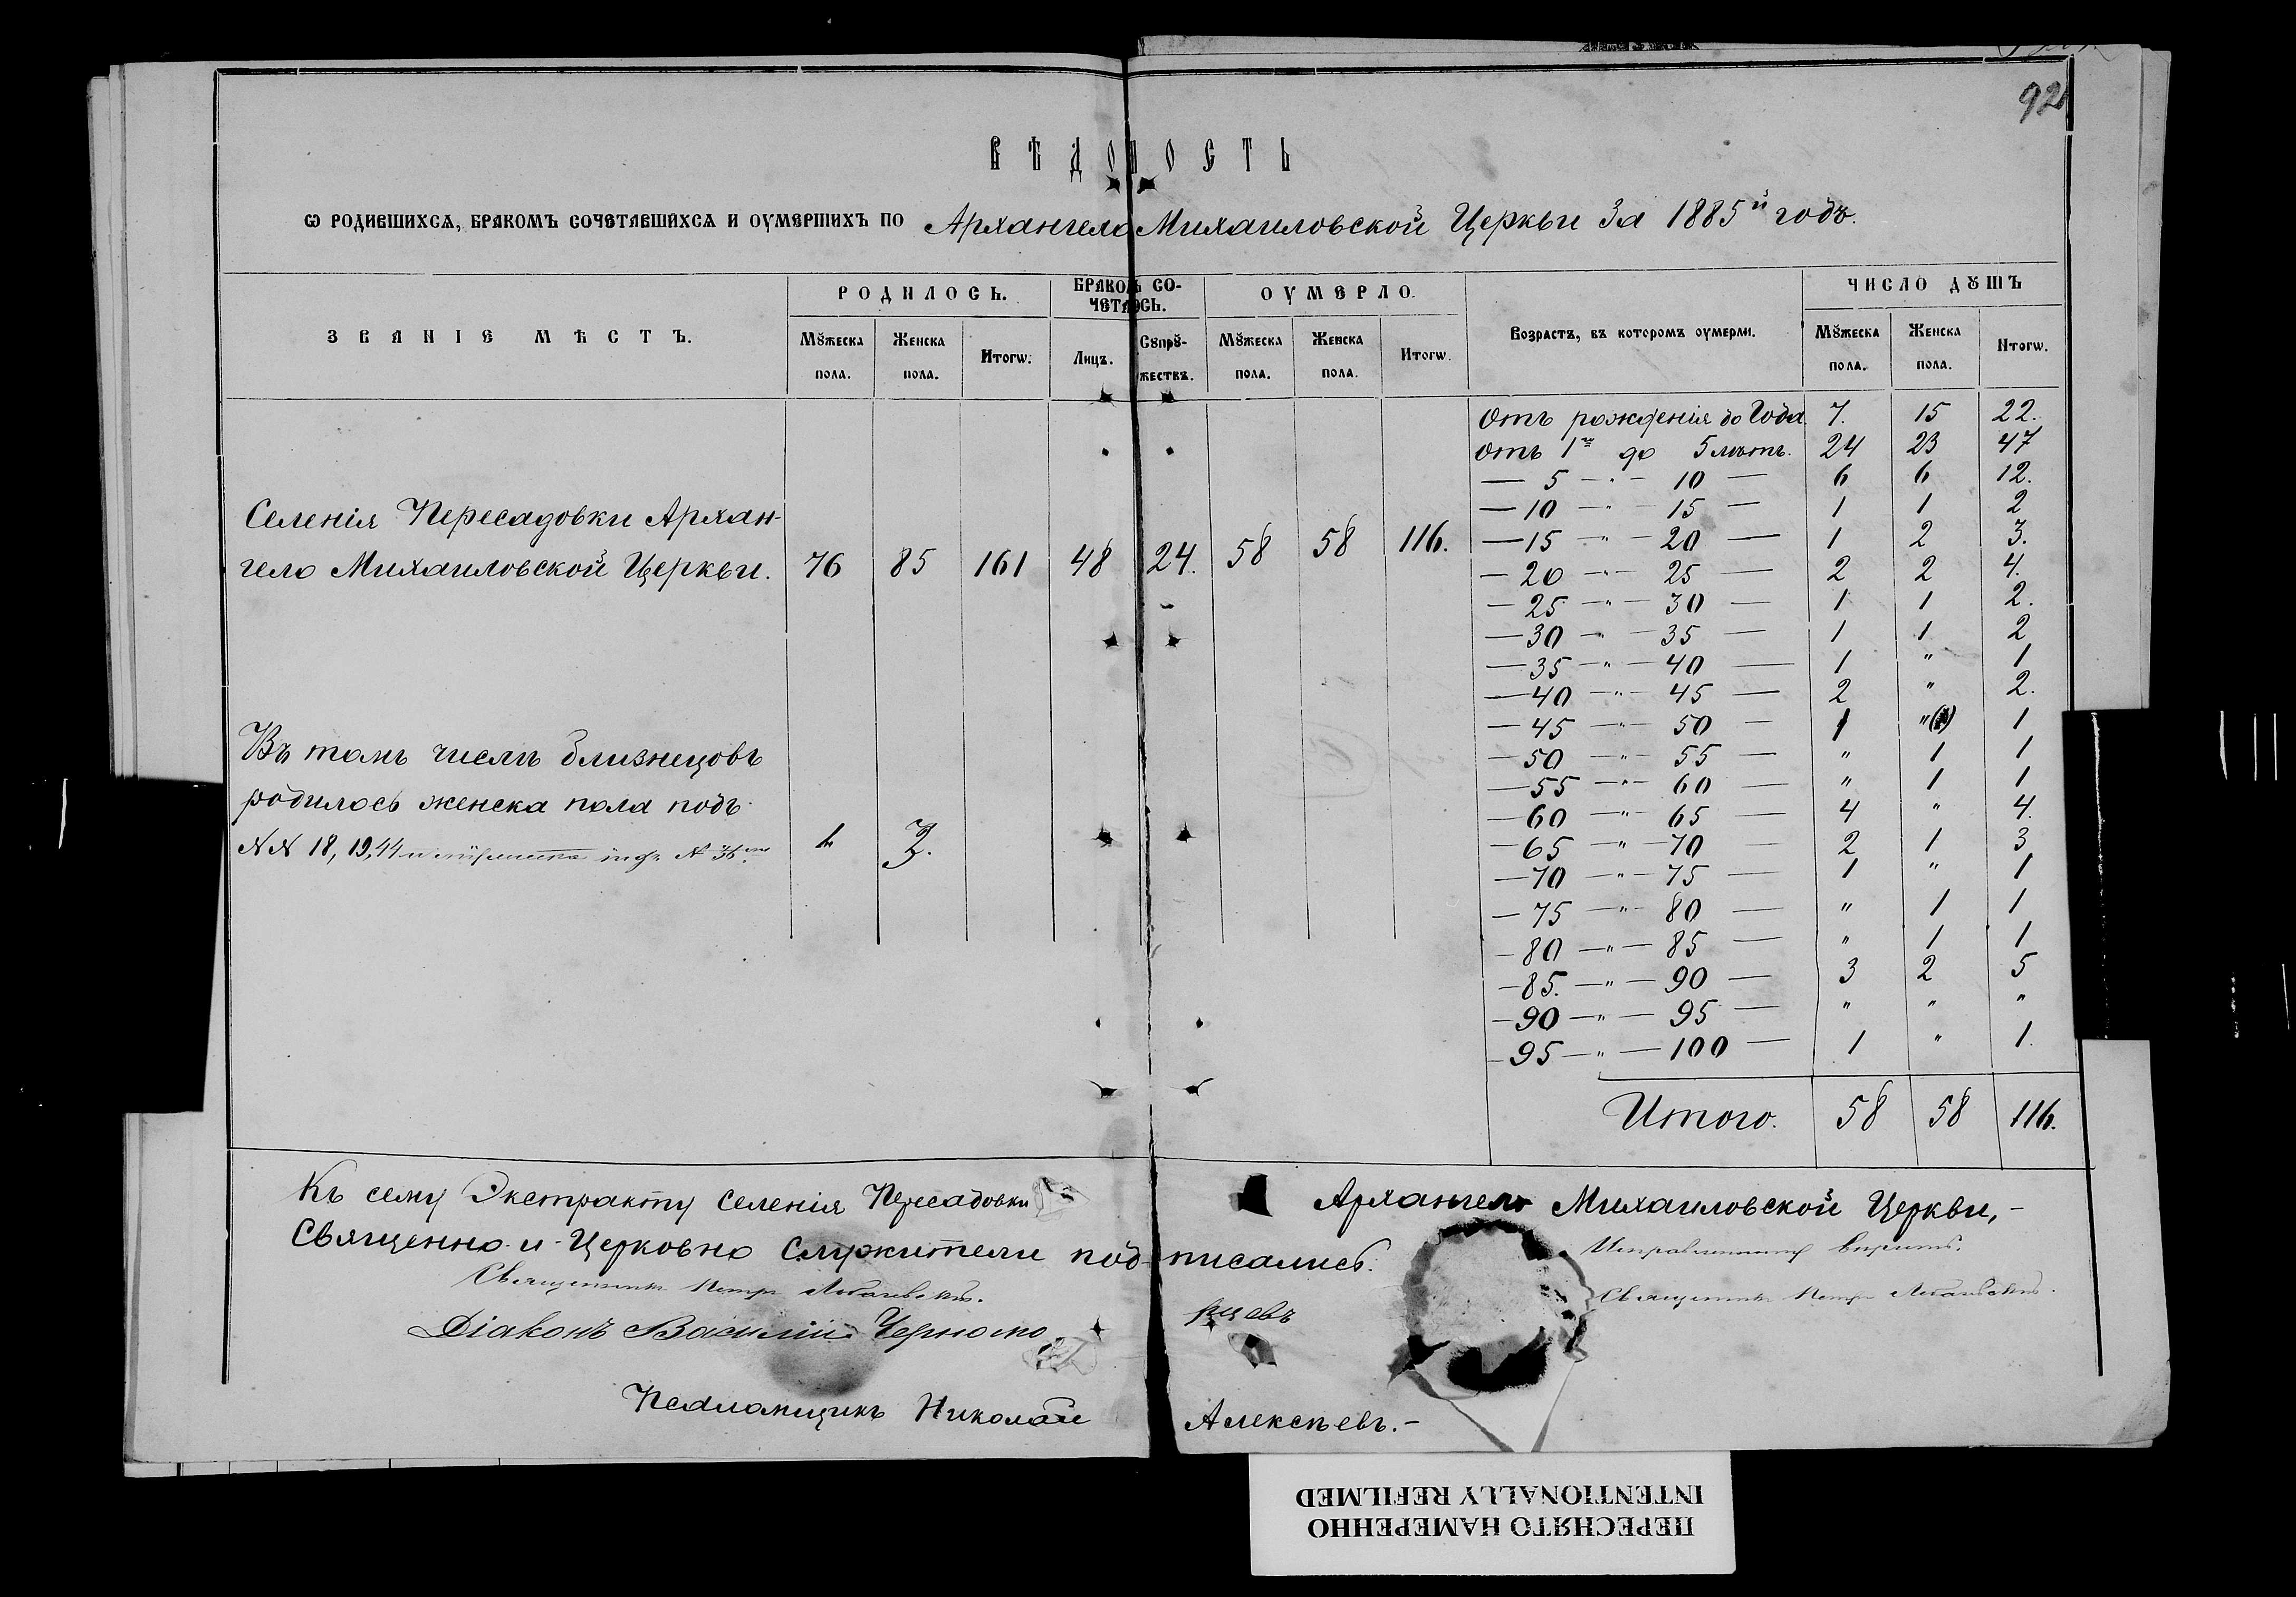 92
ВѢДОМОСТЬ
Ѡ РОДИВШИХСѦ, БРАКОМЪ СОЧЕТАВШИХСѦ И ОУМЕРШИХЪ ПО Архангело Михаиловской Церкви За 1885й годъ.
ЗВАНІЕ МѢСТЪ.
РОДИЛОСЬ.
БРАКОМЪ СО-
ЧЕТАЛОСЬ.
ОУМЕРЛО.
Возрастъ, въ которомъ оумерли.
ЧИСЛО ДꙊШЪ
Мꙋжеска пола. Женска пола. Итогѡ. Лицъ. Сꙋпрꙋ-жествъ. Мꙋжеска пола. Женска пола. Итогѡ. Мꙋжеска пола. Женска пола. Итогѡ.
Селенія Пересадовки Архан-
гело Михаиловской Церкви. 76 85 161 48 24. 58 58 116.
Въ томъ числѣ близнецовъ
родилось женска пола подъ
NN 18, 19, 44 и № 36 3.
Отъ рожденія до Года. 7. 15 22.
Отъ 1го до 5 лѣтъ. 24 23 47
— 5 — " — 10 — 6 6 12.
— 10 — " — 15 — 1 1 2
— 15 — " — 20 — 1 2 3.
— 20 — " — 25 — 2 2 4.
— 25 — " — 30 — 1 1 2.
— 30 — " — 35 — 1 1 2
— 35 — " — 40 — 1 " 1
— 40 — " — 45 — 2 " 2.
— 45 — " — 50 — 1 " 1
— 50 — " — 55 — " 1 1
— 55 — " — 60 — " 1 1
— 60 — " — 65 — 4 " 4.
— 65 — " — 70 — 2 1 3
— 70 — " — 75 — 1 " 1
— 75 — " — 80 — " 1 1
— 80 — " — 85 — " 1 1
— 85. — " — 90 — 3 2 5
— 90 — " — 95 — " " "
— 95 — " — 100 — 1 " 1.
Итого. 58 58 116.
Къ сему Экстракту Селенія Пересадовки Архангело Михаиловской Церкви, –
Священно-и-Церковно Служители подписались:
Священникъ Петръ
Діаконъ Василій Черноморцевъ
Псаломщикъ Николай Алексѣевъ. –
Священникъ Петръ
ПЕРЕСНЯТО НАМЕРЕННО
INTENTIONALLY REFILMED